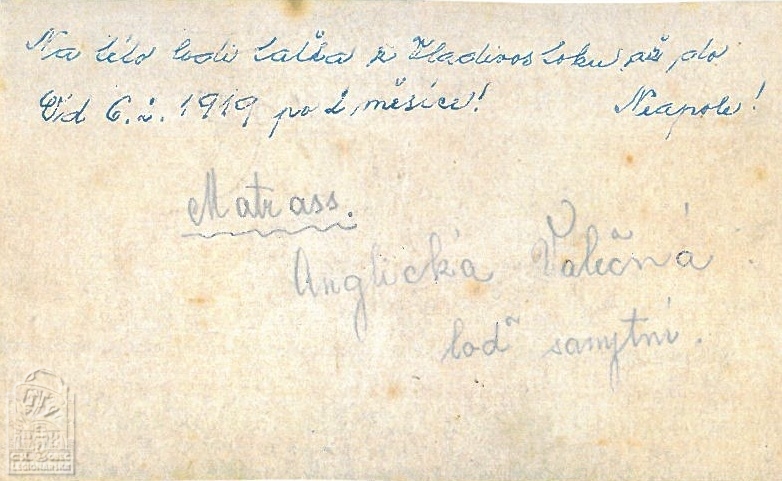 Na této lodi cesta z Vladivostoku až do
Od 6. 2. 1919 po 2 měsíce! Neapole!
Matrass.
Anglická Valečná
loď sanytní.
ČS. OBEC
LEGIONÁŘSKÁ